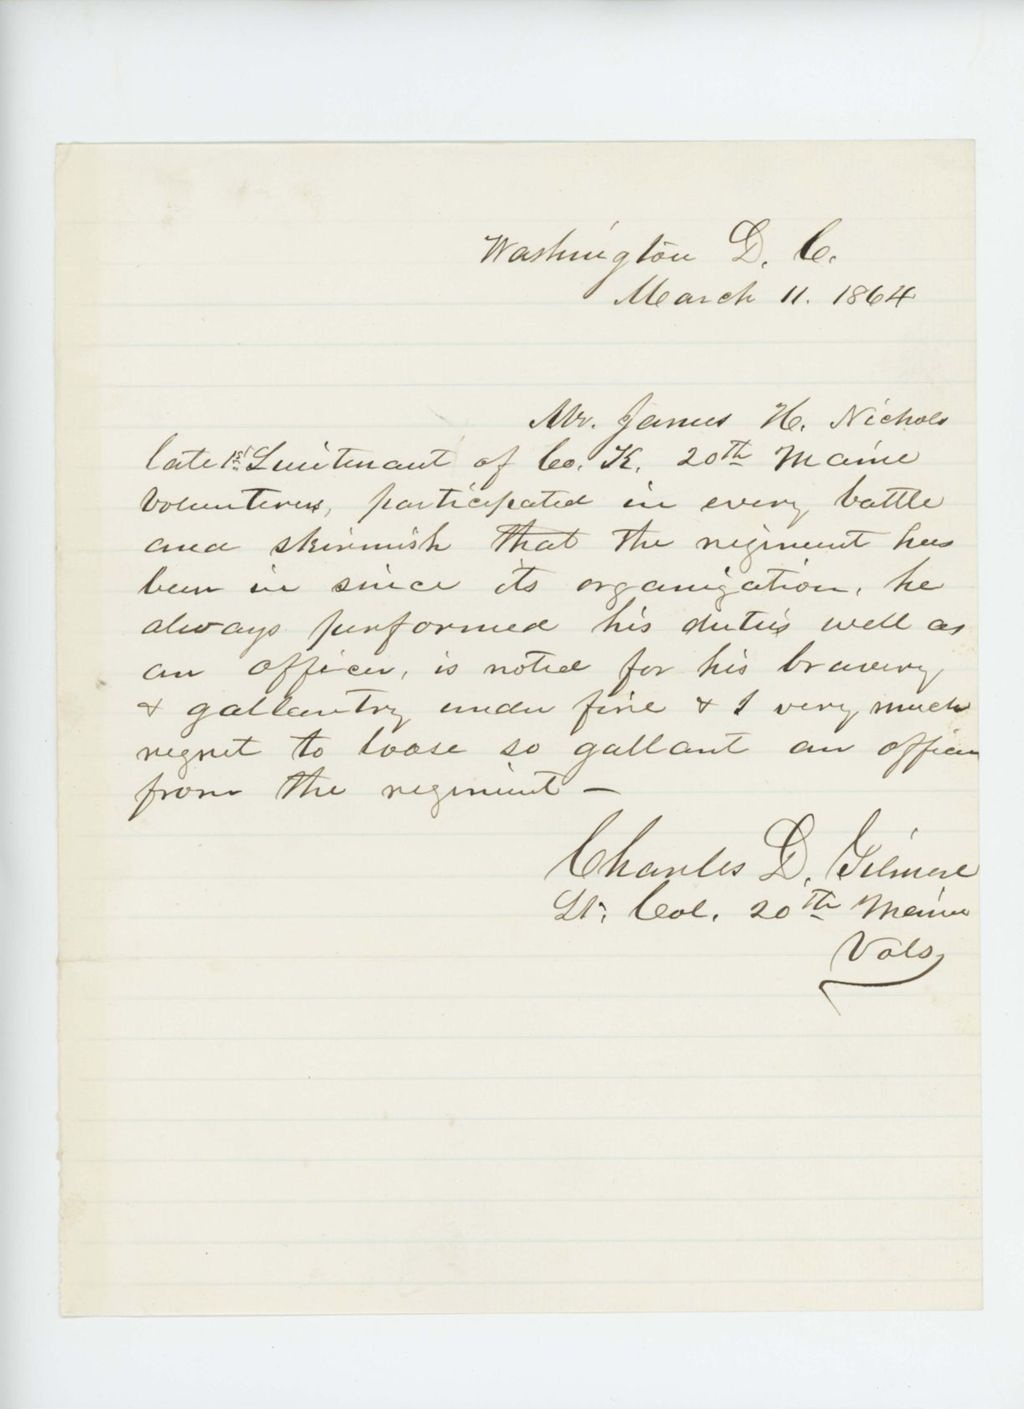 Washington D. C.
March 11. 1864
Mr. James H. Nichols
late 1st Lieutenant of Co. K. 20th Maine
Volunteers, participated in every battle
and skirmish that the regiment has
been in since its organization, he
always performed his duties well as
an officer, is noted for his bravery
& gallantry under fire & I very much
regret to loose so gallant an officer
from the regiment —
Charles D. Gilmore
Lt. Col. 20th Maine
Vols,